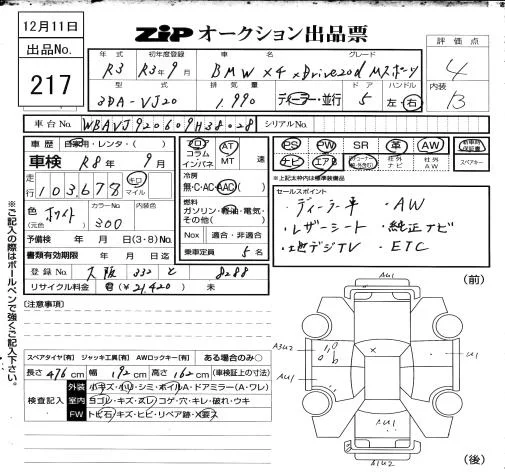 12月11日
出品No.
217
ZIP オークション出品票
年式 初年度登録 車名 グレード
R3 R3年9月 BMW X4 xDrive20d Mスポーツ
型式 排気量 ドア ハンドル
3DA-VJ20 1,990 ディーラー・並行 5 左・右
評価点
4
内装
B
車台No. WBAVJ920609H38028 シリアルNo.
車歴 自家用・レンタ・( )
車検 R8年9月
走行 103,678 キロ マイル
色(元色) ホワイト カラーNo. 300 内装色
予備検 年 月 日(3・8)No.
書類有効期限 年 月 日迄
登録No. 大阪 332 と 8288
リサイクル料金 有(¥21,420) 未
フロア AT
コラム
インパネ MT 速
冷房
無・C・AC・AAC( )
燃料
ガソリン・軽油・電気・その他( )
Nox 適合・非適合
乗車定員 5名
PS PW SR 革 AW
ナビ エアB 社外ナビ 社外AW スペアキー
セールスポイント
・ディーラー車 ・AW
・レザーシート ・純正ナビ
・地デジTV ・ETC
(注意事項)
スペアタイヤ[有] ジャッキ工具[有] AWロックキー[有] ある場合のみ○
長さ 476cm 幅 192cm 高さ 162cm (車検証上の寸法)
検査記入
外装 小キズ・凹・シミ・ホイルA・ドアミラー(A・ワレ)
室内 ヨゴレ・キズ・スレ・コゲ・穴・キレ・破れ・ウキ
FW トビ石・キズ・ヒビ・リペア跡・X要交
※ご記入の際はボールペンで強くご記入下さい。
(前)
AU1
A3U2
AU1
U1
AU1
A1U2
(後)